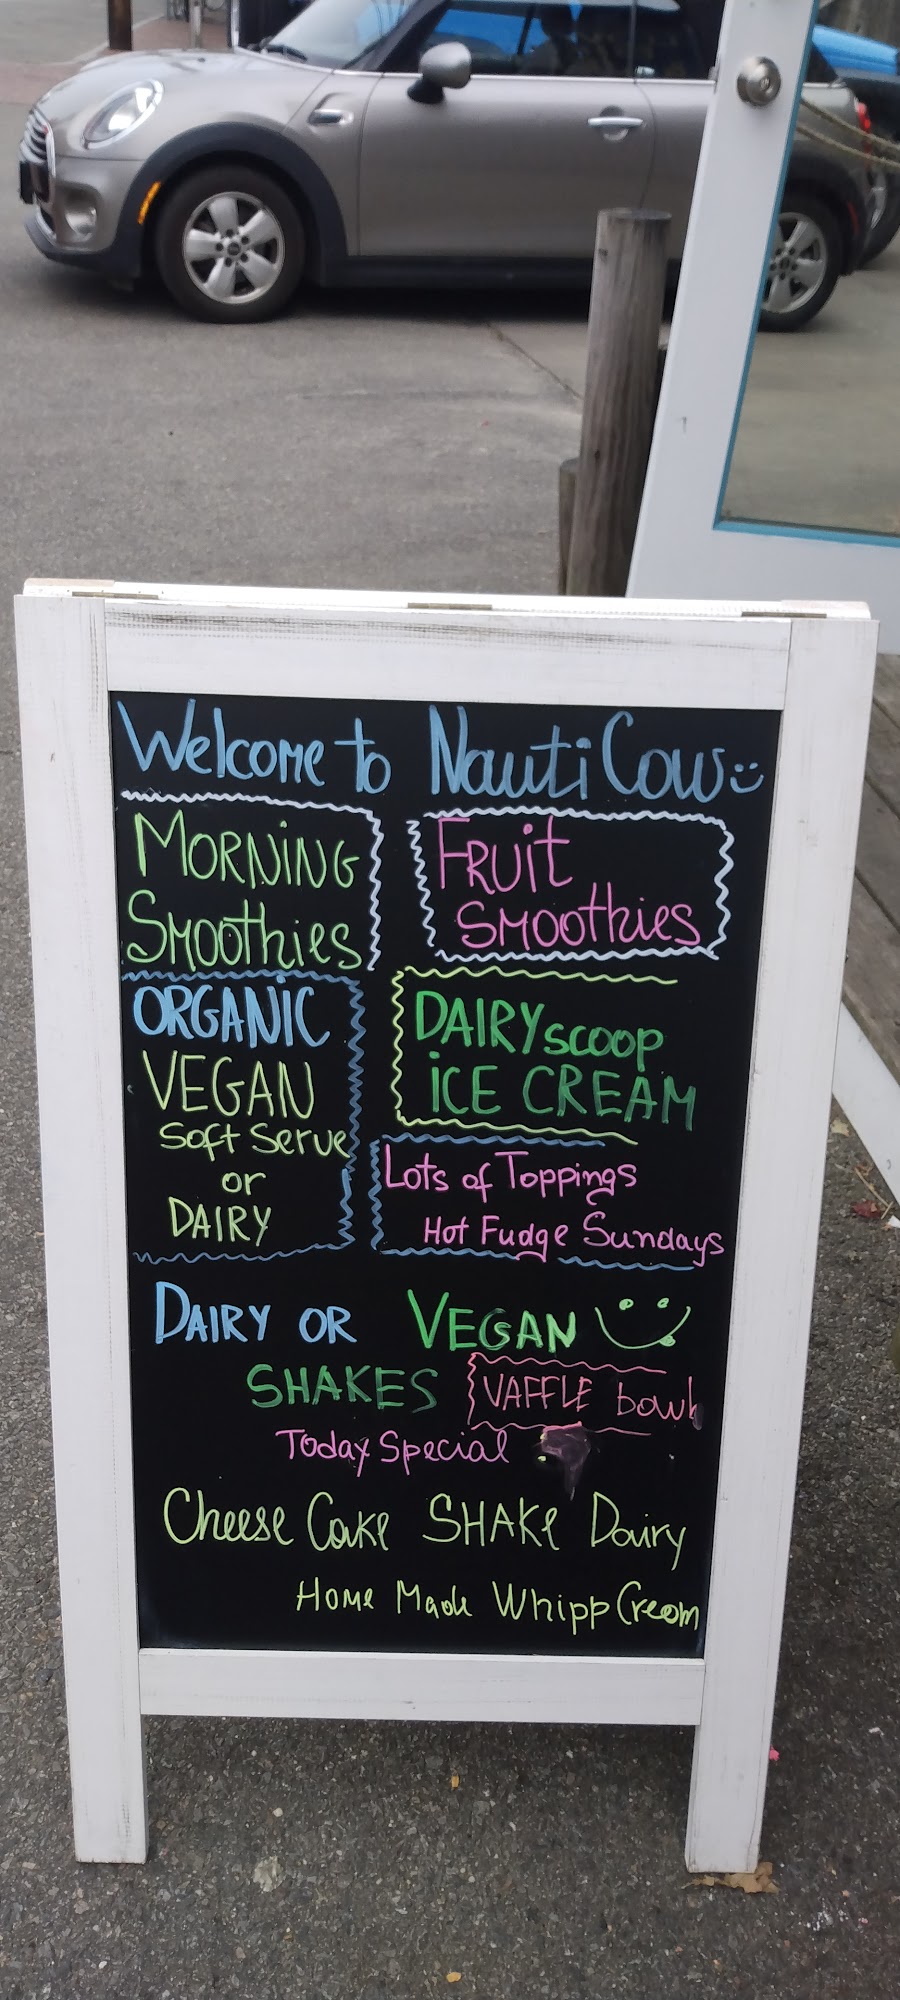 Welcome to NautiCow
MORNiNG
Smoothies
FRUiT
SMOOthies
ORGANiC
VEGAN
Soft Serve
or
DAIRY
DAIRY scoop
iCE CREAM
Lots of Toppings
Hot Fudge Sundays
DAIRY OR VEGAN
SHAKES
VAFFLE bowl
Today Special
Cheese Cake SHAKe Dairy
Home Made Whipp Cream